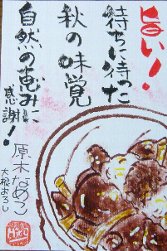 旨い!
待ちに待った
秋の味覚
自然の恵みに
感謝!
原木なめこ
大根おろし